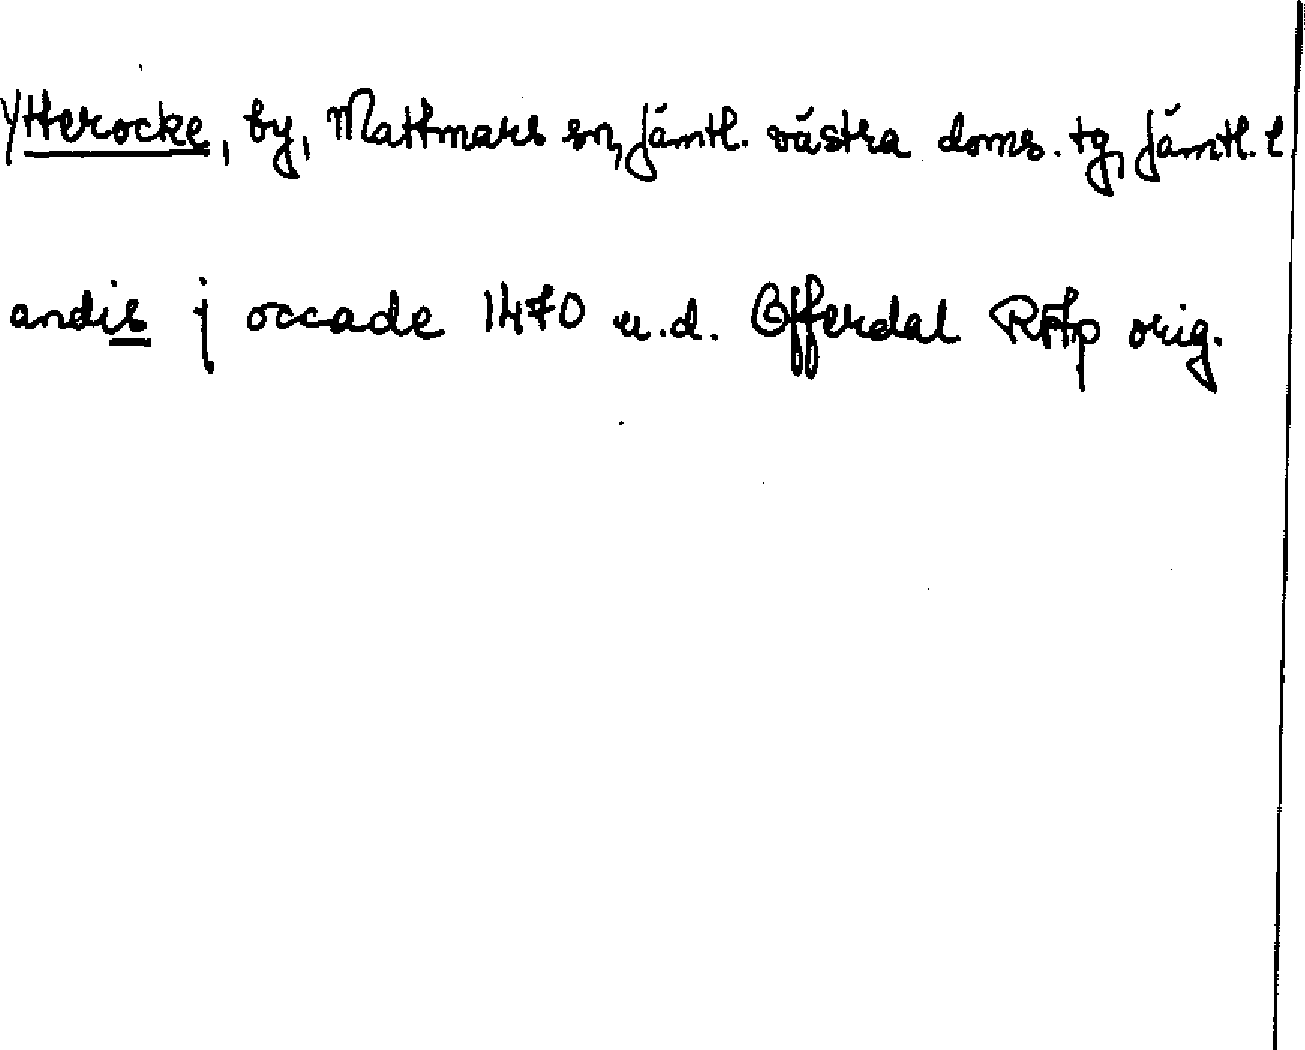 Ytterocke, by, Mattmars sn, Jämtl. västra doms. tg, Jämtl. l
andis j occade 1470 u.d. Offerdal RAp orig.